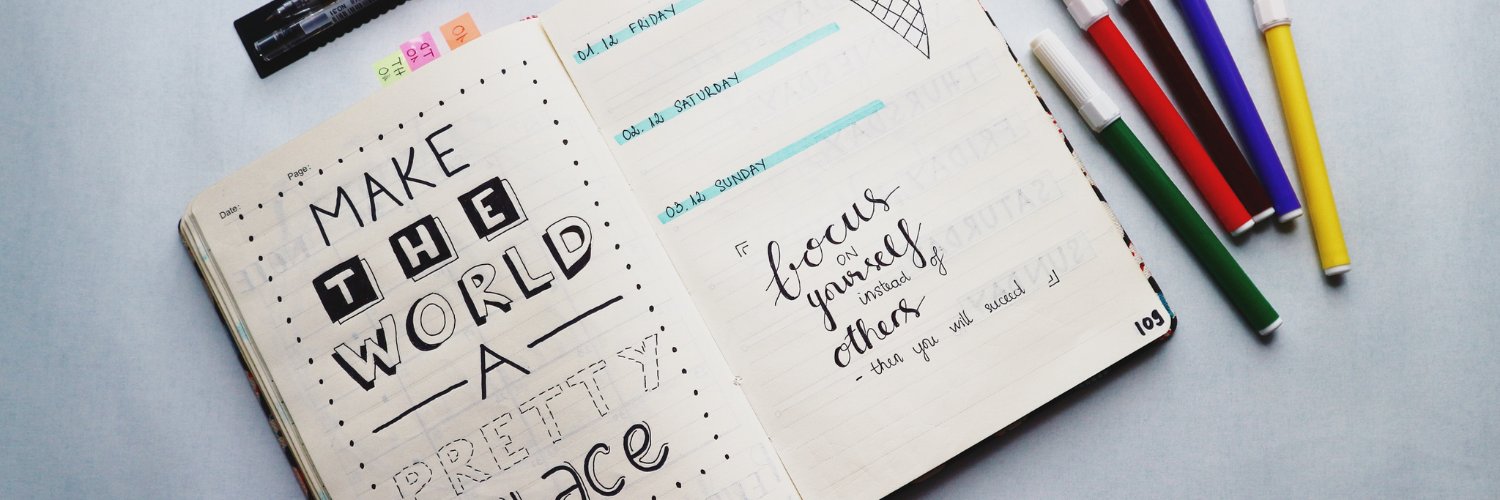 Date:
Page:
MAKE
THE
WORLD
A
PRETTY
place
01. 12 FRIDAY
02. 12 SATURDAY
03. 12 SUNDAY
focus
ON
yourself
instead of
others
- then you will suceed
109